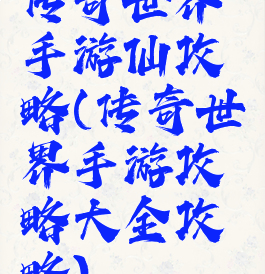 传奇世界
手游仙攻
略(传奇世
界手游攻
略大全攻
略)